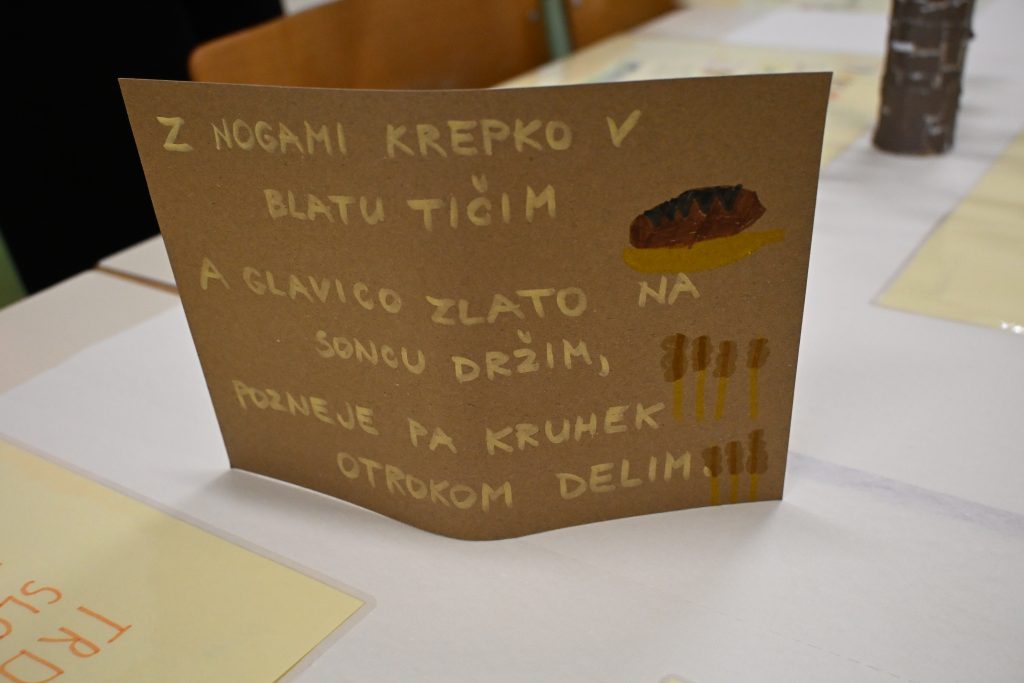 Z NOGAMI KREPKO V
BLATU TIČIM
A GLAVICO ZLATO NA
SONCU DRŽIM,
POZNEJE PA KRUHEK
OTROKOM DELIM.